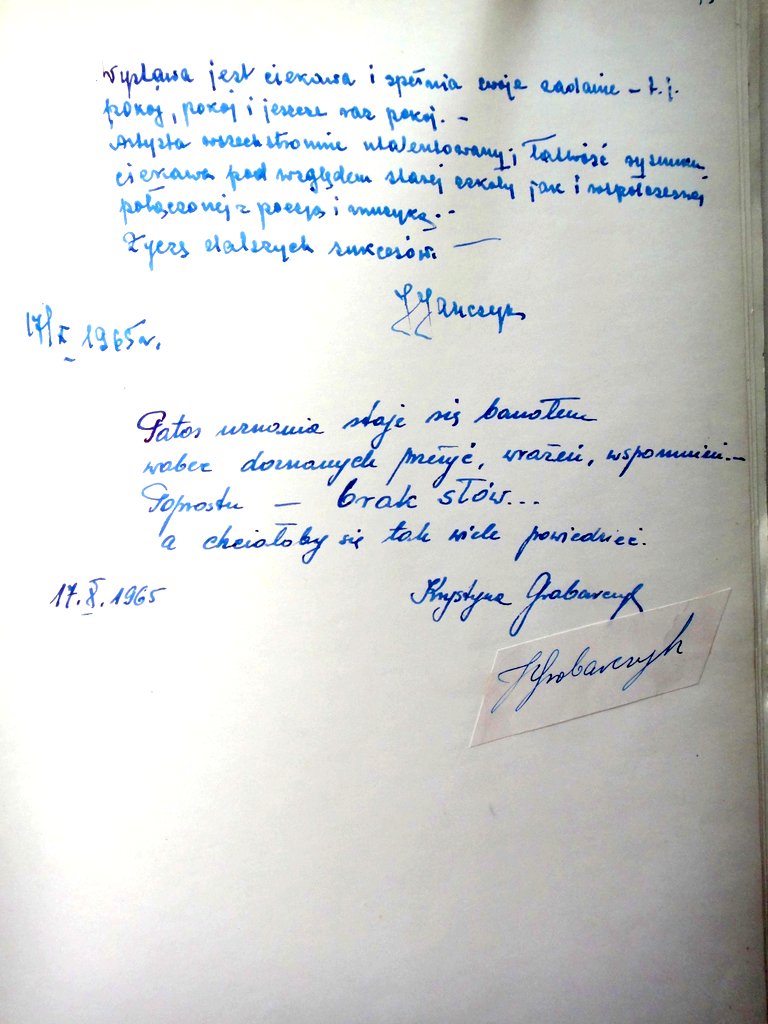 Wystawa jest ciekawa i spełnia swoje zadanie – t.j.
pokój, pokój i jeszcze raz pokój. –
Artysta wszechstronnie utalentowany; łatwość rysunku
ciekawa pod względem starej szkoły jak i współczesnej
połączonej z poezją i muzyką. –
Życzę dalszych sukcesów. —
Janczyk
17/X 1965 r.
Patos uznania staje się banałem
wobec doznanych przeżyć, wrażeń, wspomnień. –
Poprostu — brak słów...
a chciałoby się tak wiele powiedzieć.
17.X.1965
Krystyna Grabarczyk
Grabarczyk